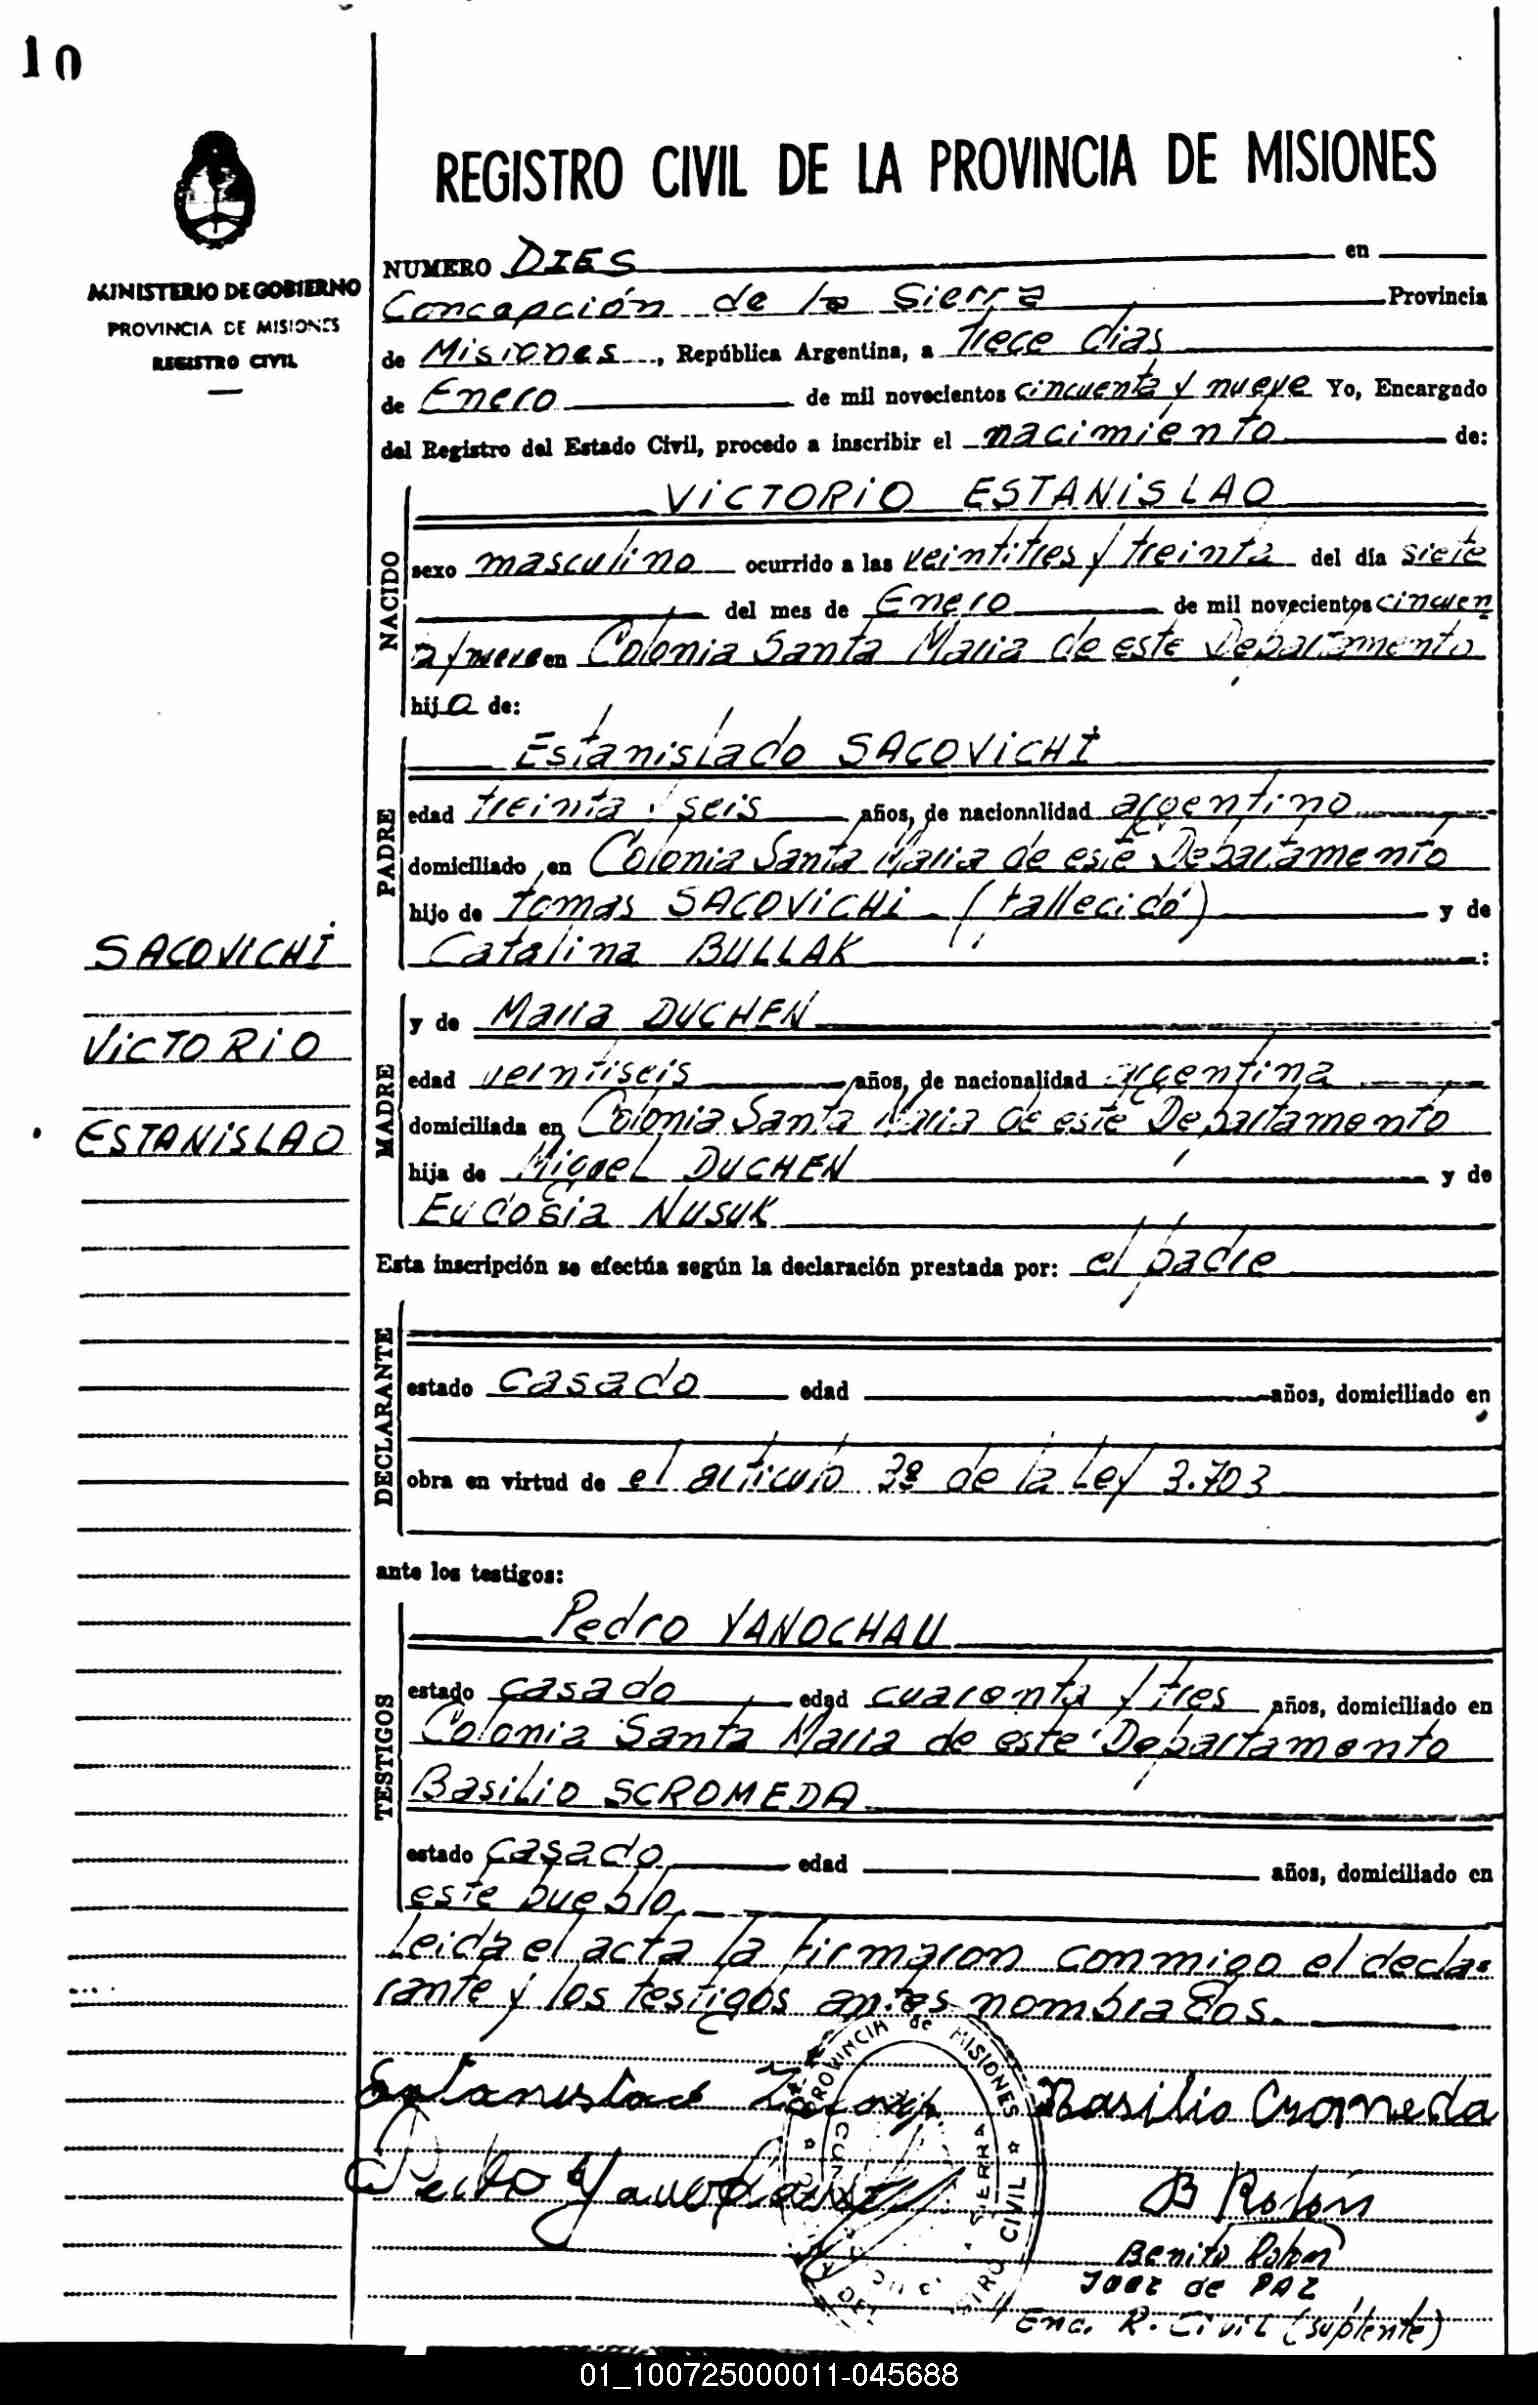 10
MINISTERIO DE GOBIERNO
PROVINCIA DE MISIONES
REGISTRO CIVIL
REGISTRO CIVIL DE LA PROVINCIA DE MISIONES
NUMERO DIES en
Concepción de la Sierra Provincia
de Misiones, República Argentina, a trece dias
de Enero de mil novecientos cincuenta y nueve Yo, Encargado
del Registro del Estado Civil, procedo a inscribir el nacimiento de:
NACIDO
VICTORIO ESTANISLAO
sexo masculino ocurrido a las veintitres y treinta del día siete
del mes de Enero de mil novecientos cincuen
ta y nueve en Colonia Santa Maria de este Departamento
hijo de:
PADRE
Estanislado SACOVICHI
edad treinta y seis años, de nacionalidad argentino
domiciliado en Colonia Santa Maria de este Departamento
hijo de tomas SACOVICHI (fallecido) y de
Catalina BULLAK :
SACOVICHI
VICTORIO
ESTANISLAO
MADRE
y de Maria DUCHEN
edad veintiseis años, de nacionalidad argentina
domiciliada en Colonia Santa Maria de este Departamento
hija de Miguel DUCHEN y de
Eudosia NUSUK
Esta inscripción se efectúa según la declaración prestada por: el padre
DECLARANTE
estado casado edad años, domiciliado en
obra en virtud de el articulo 3º de la Ley 3.703
ante los testigos:
TESTIGOS
Pedro YANOCHAU
estado casado edad cuarenta y tres años, domiciliado en
Colonia Santa Maria de este Departamento
Basilio SCROMEDA
estado casado edad años, domiciliado en
este pueblo
Leida el acta la firmaron conmigo el decla-
rante y los testigos antes nombrados.
PROVINCIA de MISIONES
SIERRA
CIVIL
Estanislao
Basilio Cromeda
Pedro
B Rolón
Benito Rolon
Juez de PAZ
Enc. R. Civil (suplente)
01_100725000011-045688